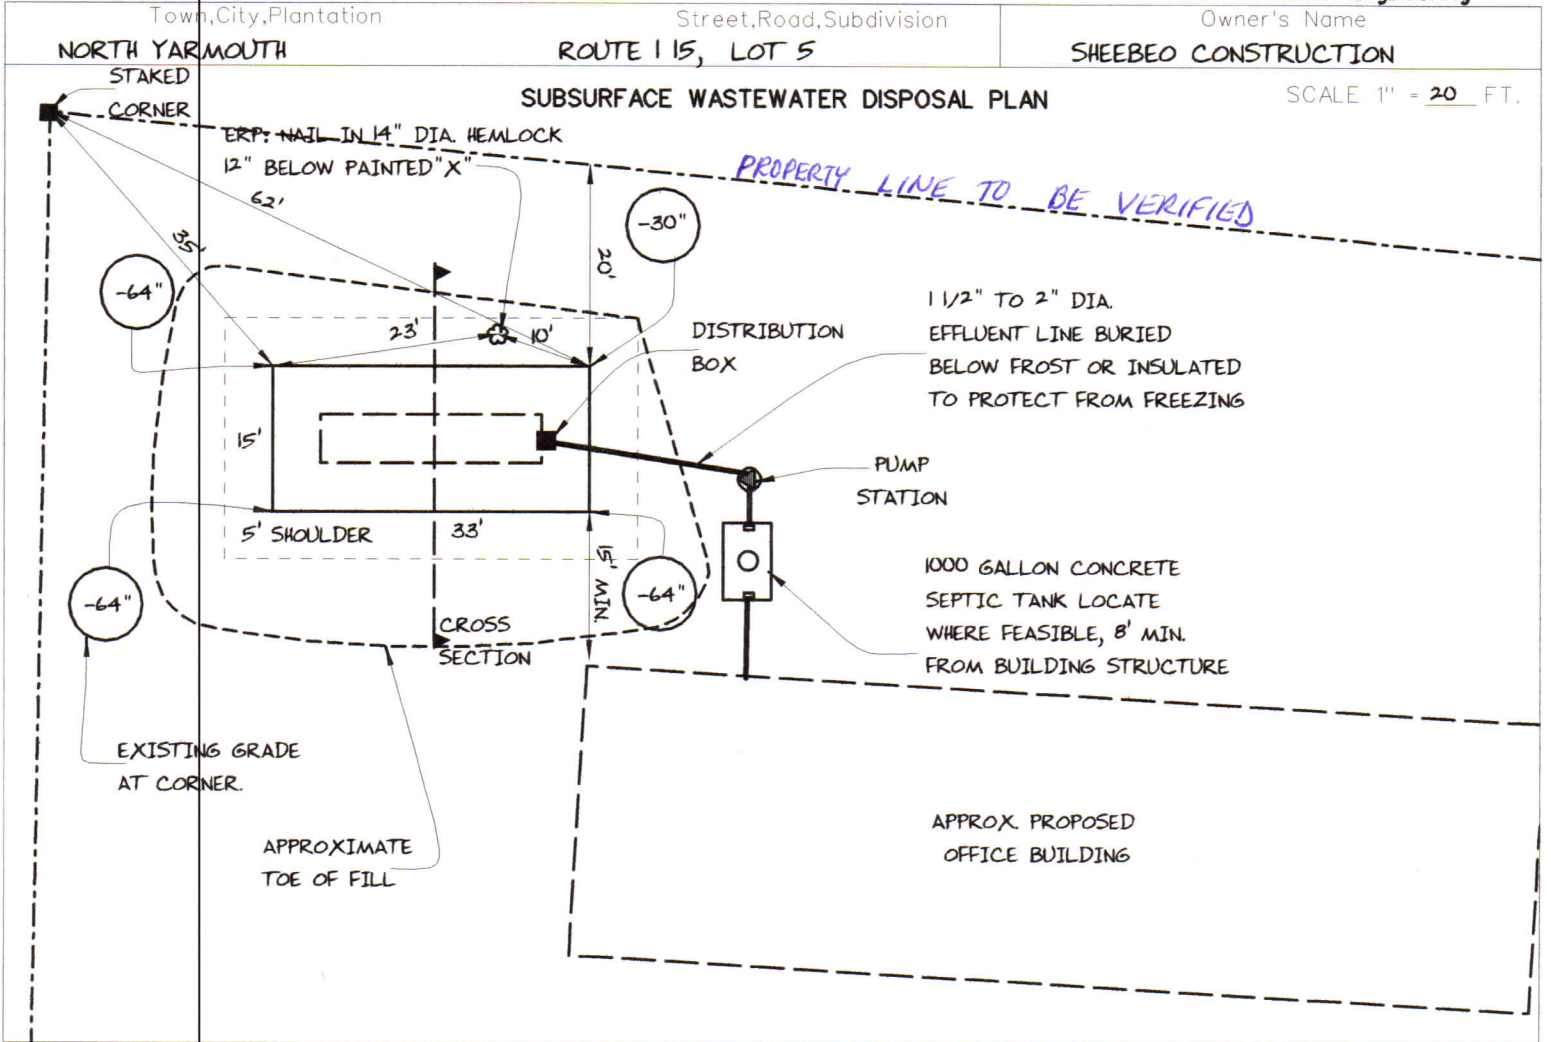 Town,City,Plantation
Street,Road,Subdivision
Owner's Name
NORTH YARMOUTH
ROUTE 115, LOT 5
SHEEBEO CONSTRUCTION
SUBSURFACE WASTEWATER DISPOSAL PLAN
SCALE 1" = 20 FT.
STAKED
CORNER
ERP: NAIL IN 14" DIA. HEMLOCK
12" BELOW PAINTED "X"
PROPERTY LINE TO BE VERIFIED
62'
35'
20'
-30"
-64"
23'
10'
DISTRIBUTION
BOX
1 1/2" TO 2" DIA.
EFFLUENT LINE BURIED
BELOW FROST OR INSULATED
TO PROTECT FROM FREEZING
15'
PUMP
STATION
5' SHOULDER
33'
15' MIN.
-64"
-64"
1000 GALLON CONCRETE
SEPTIC TANK LOCATE
WHERE FEASIBLE, 8' MIN.
FROM BUILDING STRUCTURE
CROSS
SECTION
EXISTING GRADE
AT CORNER.
APPROXIMATE
TOE OF FILL
APPROX. PROPOSED
OFFICE BUILDING